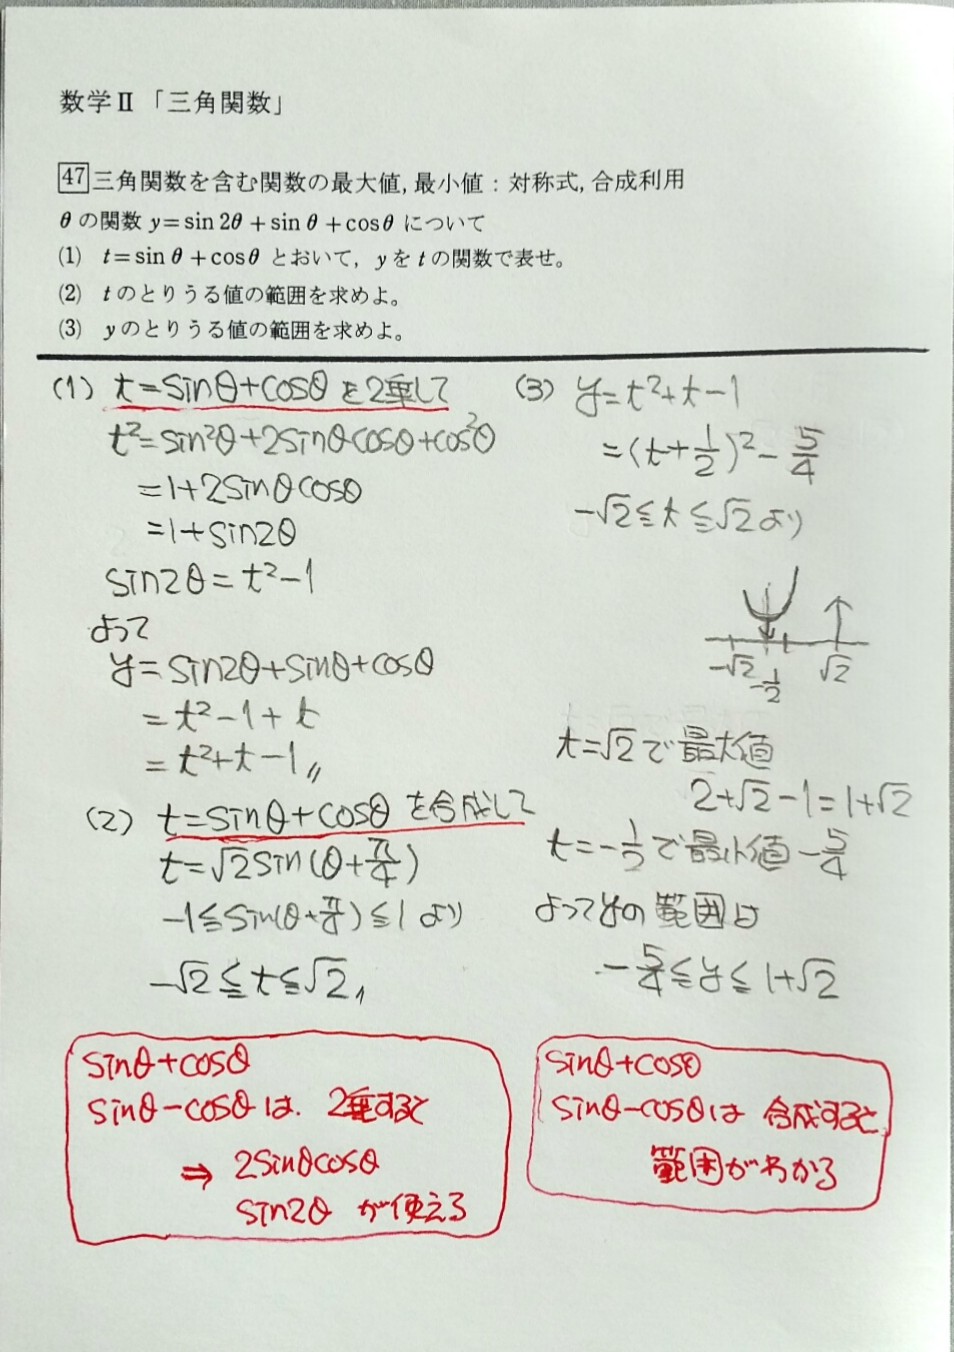 数学Ⅱ「三角関数」
47 三角関数を含む関数の最大値, 最小値：対称式, 合成利用
θ の関数 y=sin 2θ+sin θ+cos θ について
(1) t=sin θ+cos θ とおいて, y を t の関数で表せ。
(2) t のとりうる値の範囲を求めよ。
(3) y のとりうる値の範囲を求めよ。
(1) t=sinθ+cosθ を2乗して
t²=sin²θ+2sinθcosθ+cos²θ
=1+2sinθcosθ
=1+sin2θ
sin2θ=t²-1
よって
y=sin2θ+sinθ+cosθ
=t²-1+t
=t²+t-1〃
(2) t=sinθ+cosθ を合成して
t=√2sin(θ+π/4)
-1≦sin(θ+π/4)≦1 より
-√2≦t≦√2〃
(3) y=t²+t-1
=(t+1/2)²-5/4
-√2≦t≦√2より
-√2 -1/2 √2
t=√2で最大値
2+√2-1=1+√2
t=-1/2で最小値-5/4
よってyの範囲は
-5/4≦y≦1+√2
sinθ+cosθ
sinθ-cosθは、2乗すると
⇒ 2sinθcosθ
sin2θ が使える
sinθ+cosθ
sinθ-cosθは 合成すると
範囲がわかる